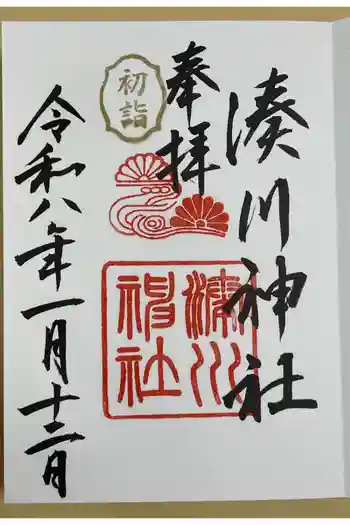 奉拝
湊川神社
初詣
湊川神社
令和八年一月十二日